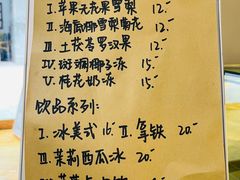 I. 苹果无花果雪梨 12.-
II. 海底椰雪梨菊花 12.-
III. 土茯苓罗汉果 12.-
IV. 斑斓椰子冰 15.-
V. 桂花奶冰 15.-
饮品系列:
I. 冰美式 16.- II. 拿铁 20.-
III. 茉莉西瓜冰 20.-